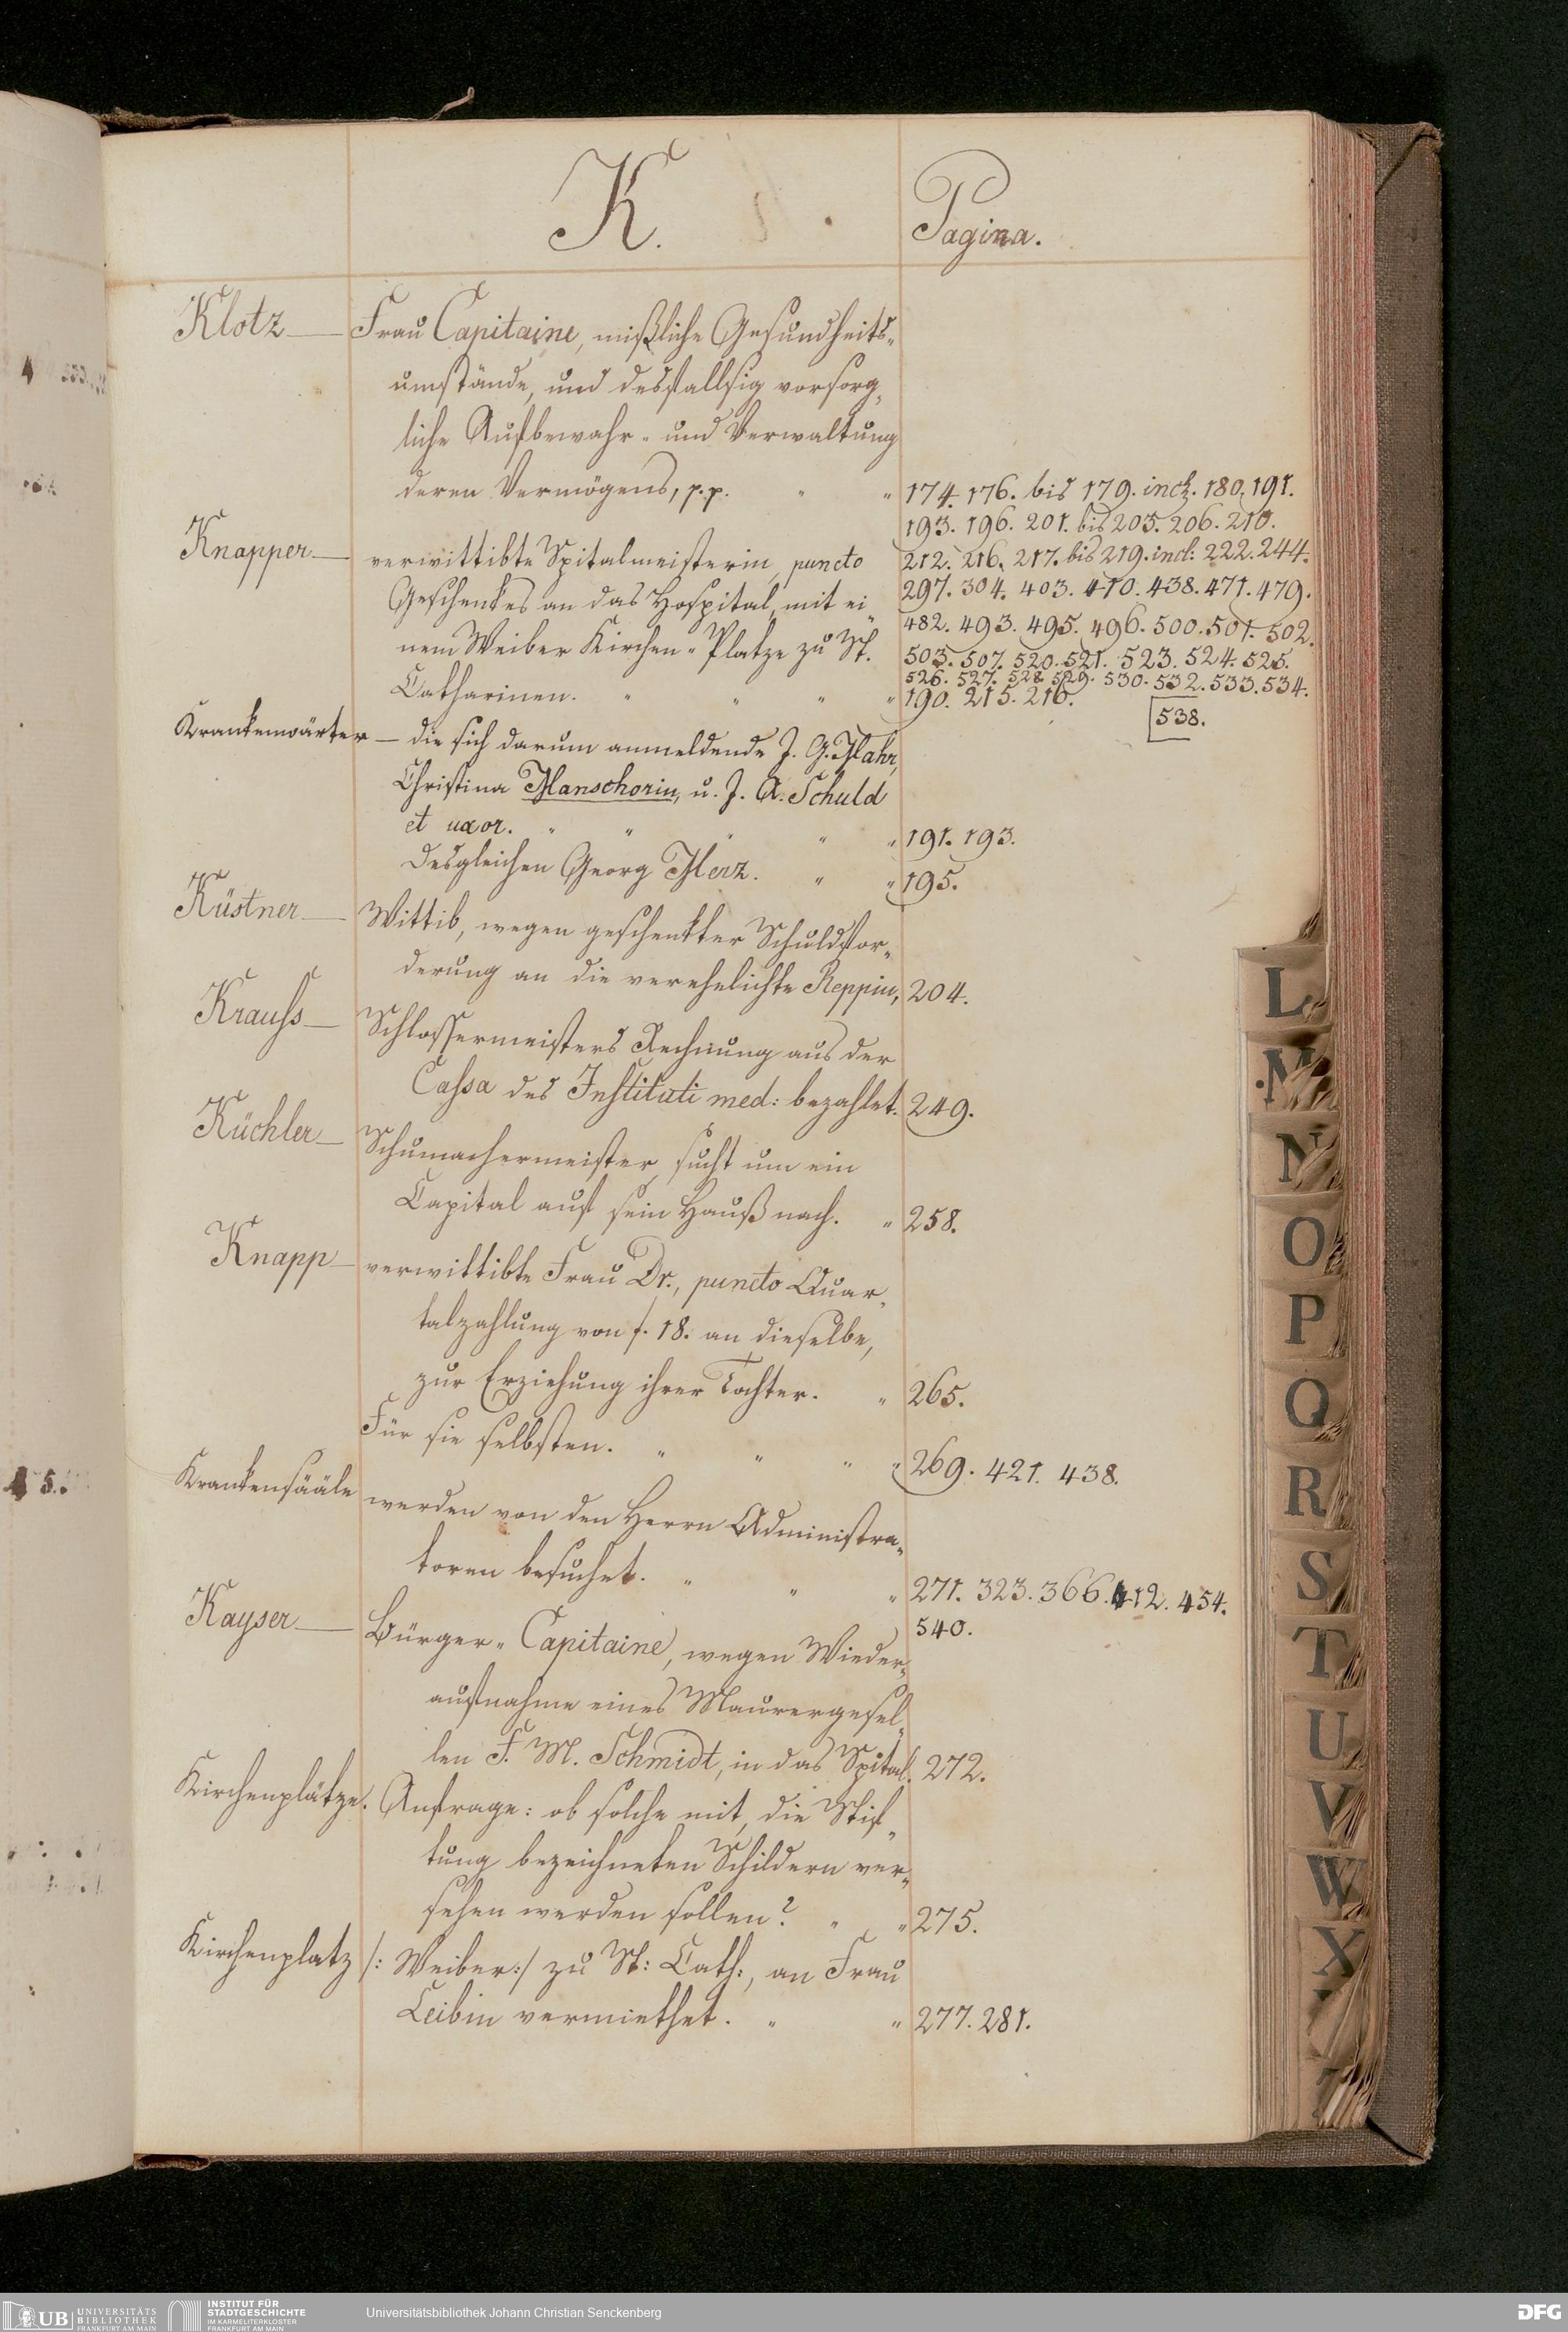 K.
Pagina.
Klotz — Frau Capitaine, mißliche Gesundheits-
umstände, und desfallsig vorsorg-
liche Aufbewahr- und Verwaltung
deren Vermögens, p.p. " " 174. 176. bis 179. incl. 180. 191.
193. 196. 201. bis 203. 206. 210.
212. 216. 217. bis 219. incl: 222. 244.
297. 304. 403. 410. 438. 471. 479.
482. 493. 495. 496. 500. 501. 502.
503. 507. 520. 521. 523. 524. 525.
526. 527. 528. 529. 530. 532. 533. 534.
538.
Knapper — verwittibte Spitalmeisterin, puncto
Geschenkes an das Hospital, mit ei-
nem Weiber Kirchen-Platze zu St.
Catharinen. " " " " 190. 215. 216.
Krankenwärter — die sich darum anmeldende J. G. Hahr,
Christina Manschorin, u. J. A. Schuld
et uxor. " " " " " 191. 193.
Desgleichen Georg Herz. " " 195.
Küstner — Wittib, wegen geschenkter Schuldfor-
derung an die verehelichte Reppin, 204.
Krauss — Schlossermeisters Rechnung aus der
Cassa des Instituti med: bezahlet. 249.
Küchler — Schumachermeister, sucht um ein
Capital auf sein Hauß nach. " 258.
Knapp — verwittibte Frau Dr., puncto Quar-
talzahlung von f. 18. an dieselbe,
zur Erziehung ihrer Tochter. " 265.
Für sie selbsten. " " " " 269. 421. 438.
Krankensääle werden von den Herrn Administra-
toren besuchet. " " " 271. 323. 366. 412. 454.
540.
Kayser — Bürger-Capitaine, wegen Wieder-
aufnahme eines Maurergesel-
len F. M. Schmidt, in das Spital. 272.
Kirchenplätze. Anfrage: ob solche mit, die Stif-
tung bezeichneten Schildern ver-
sehen werden sollen? " " 275.
Kirchenplatz /: Weiber:/ zu St: Cath:, an Frau
Leibin vermiethet. " " 277. 281.
L
M
N
O
P
Q
R
S
T
U
V
W
X
UB UNIVERSITÄTS BIBLIOTHEK FRANKFURT AM MAIN
INSTITUT FÜR STADTGESCHICHTE IM KARMELITERKLOSTER FRANKFURT AM MAIN
Universitätsbibliothek Johann Christian Senckenberg
DFG